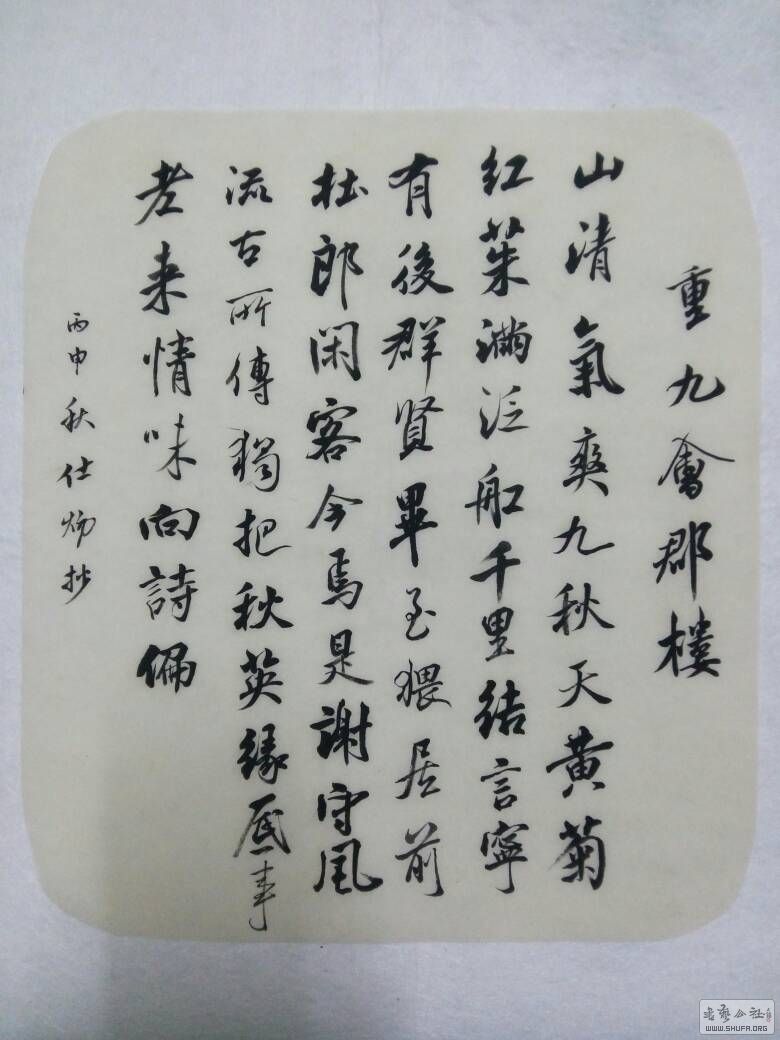 重九會郡樓
山清氣爽九秋天黃菊
紅茱滿泛船千里結言寧
有後群賢畢至猥居前
杜郎閑客今焉是謝守風
流古所傳獨把秋英緣底事
老来情味向詩偏
丙申秋仕炀抄
書藝公社
WWW.SHUFA.ORG